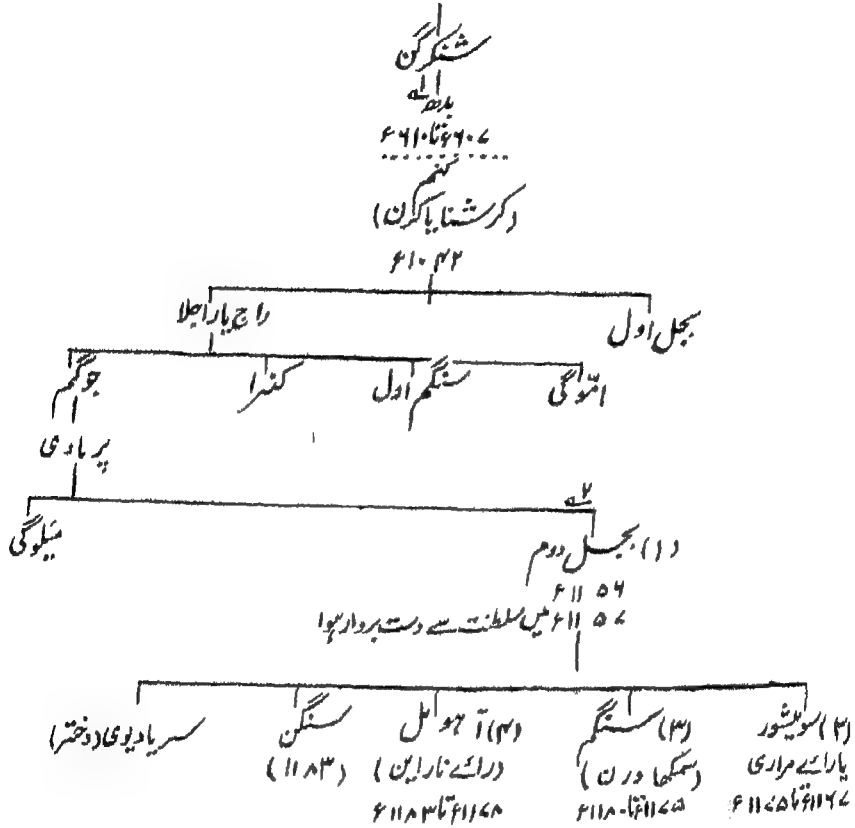 شنکرگن
بدھ
۶۰۷ء تا ۶۱۰ء
کنھم
(کرشنا یا کرن)
۱۰۴۲ء
بجل اول
راج یا راجلا
امّوگی
سنگھم اول
کنرا
جوگھم
پرمادی
۲ے
میلوگی
(۱) بجل دوم
۱۱۵۶ء
۱۱۵۷ء میں سلطنت سے دست بردار ہوا
(۲) سویشور
یا رائے مراری
۱۱۶۷ء تا ۱۱۷۵ء
(۳) سنگھم
(سمکھا ورن)
۱۱۷۵ء تا ۱۱۸۰ء
(۴) آہومل
(رائے ناراین)
۱۱۷۸ء تا ۱۱۸۳ء
سنگن
(۱۱۸۳)
سریا دیوی (دختر)